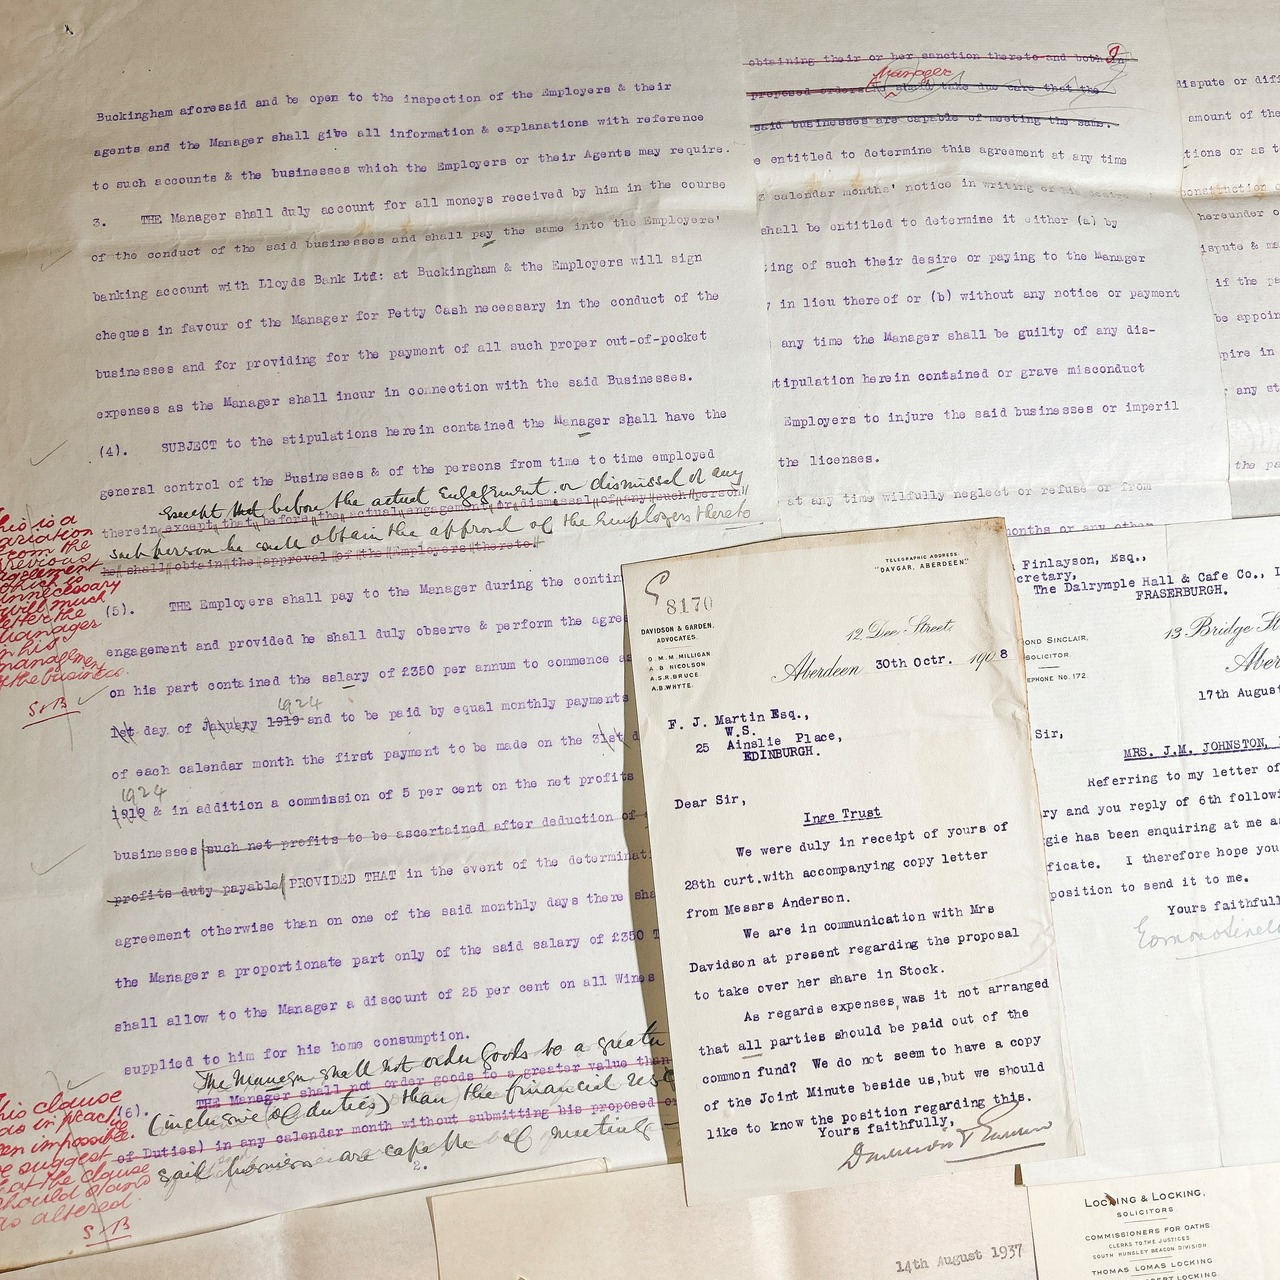 Buckingham aforesaid and be open to the inspection of the Employers & their
agents and the Manager shall give all information & explanations with reference
to such accounts & the businesses which the Employers or their Agents may require.
3. THE Manager shall duly account for all moneys received by him in the course
of the conduct of the said businesses and shall pay the same into the Employers'
banking account with Lloyds Bank Ltd: at Buckingham & the Employers will sign
cheques in favour of the Manager for Petty Cash necessary in the conduct of the
businesses and for providing for the payment of all such proper out-of-pocket
expenses as the Manager shall incur in connection with the said Businesses.
(4). SUBJECT to the stipulations herein contained the Manager shall have the
general control of the Businesses & of the persons from time to time employed
Except that before the actual engagement or dismissal of any
therein except that before the actual engagement or dismissal of any such person
such person he shall obtain the approval of the Employers thereto
he shall obtain the approval of the Employers thereto
(5). THE Employers shall pay to the Manager during the contin
engagement and provided he shall duly observe & perform the agre
on his part contained the salary of £350 per annum to commence as
1924
1st day of January 1919 and to be paid by equal monthly payments
of each calendar month the first payment to be made on the 31st d
1924
1919 & in addition a commission of 5 per cent on the net profits
businesses such net profits to be ascertained after deduction of
profits duty payable PROVIDED THAT in the event of the determinat
agreement otherwise than on one of the said monthly days there sha
the Manager a proportionate part only of the said salary of £350 T
shall allow to the Manager a discount of 25 per cent on all Wines
supplied to him for his home consumption.
The Manager shall not order goods to a greater
(6). THE Manager shall not order goods to a greater value than
(inclusive of duties) than the financial res
of Duties) in any calendar month without submitting his proposed or
said businesses are capable of meeting
2.
his is a
ariation
from the
previous
agreement
which is
unnecessary
& will much
better the
Manager
in his
management
of the business.
S & B
his clause
as in practice
en impossible.
e suggest
at the clause
should stand
as altered
S & B
obtaining their or her sanction thereto and both in
Manager
proposed orders to shall take due care that the
said businesses are capable of meeting the same.
e entitled to determine this agreement at any time
calendar months' notice in writing of
shall be entitled to determine it either (a) by
ing of such their desire or paying to the Manager
y in lieu thereof or (b) without any notice or payment
any time the Manager shall be guilty of any dis-
tipulation herein contained or grave misconduct
Employers to injure the said businesses or imperil
the licenses.
at any time wilfully neglect or refuse or from
months or any other
dispute or diff
amount of the
tions or as t
construction
hereunder o
ispute & ma
if the pa
be appoin
pire in
any st
the pa
TELEGRAPHIC ADDRESS.
"DAVGAR, ABERDEEN"
8170
DAVIDSON & GARDEN,
ADVOCATES.
D. M. M. MILLIGAN
A. B. NICOLSON
A.S.R. BRUCE
A.B. WHYTE.
12 Dee Street,
Aberdeen 30th Octr. 1908
F. J. Martin Esq.,
W.S.
25 Ainslie Place,
EDINBURGH.
Dear Sir,
Inge Trust
We were duly in receipt of yours of
28th curt.with accompanying copy letter
from Messrs Anderson.
We are in communication with Mrs
Davidson at present regarding the proposal
to take over her share in Stock.
As regards expenses,was it not arranged
that all parties should be paid out of the
common fund? We do not seem to have a copy
of the Joint Minute beside us,but we should
like to know the position regarding this.
Yours faithfully,
Davidson & Garden
Finlayson, Esq.,
cretary,
The Dalrymple Hall & Cafe Co., L
FRASERBURGH.
OND SINCLAIR,
SOLICITOR.
EPHONE No. 172.
13 Bridge St
Aber
17th August
Sir,
MRS. J.M. JOHNSTON,
Referring to my letter of
ry and you reply of 6th followi
gie has been enquiring at me as
ficate. I therefore hope you
position to send it to me.
Yours faithfull
14th August 1937
LOCKING & LOCKING,
SOLICITORS
COMMISSIONERS FOR OATHS
CLERKS TO THE JUSTICES
SOUTH HUNSLEY BEACON DIVISION
THOMAS LOMAS LOCKING
BERT LOCKING.